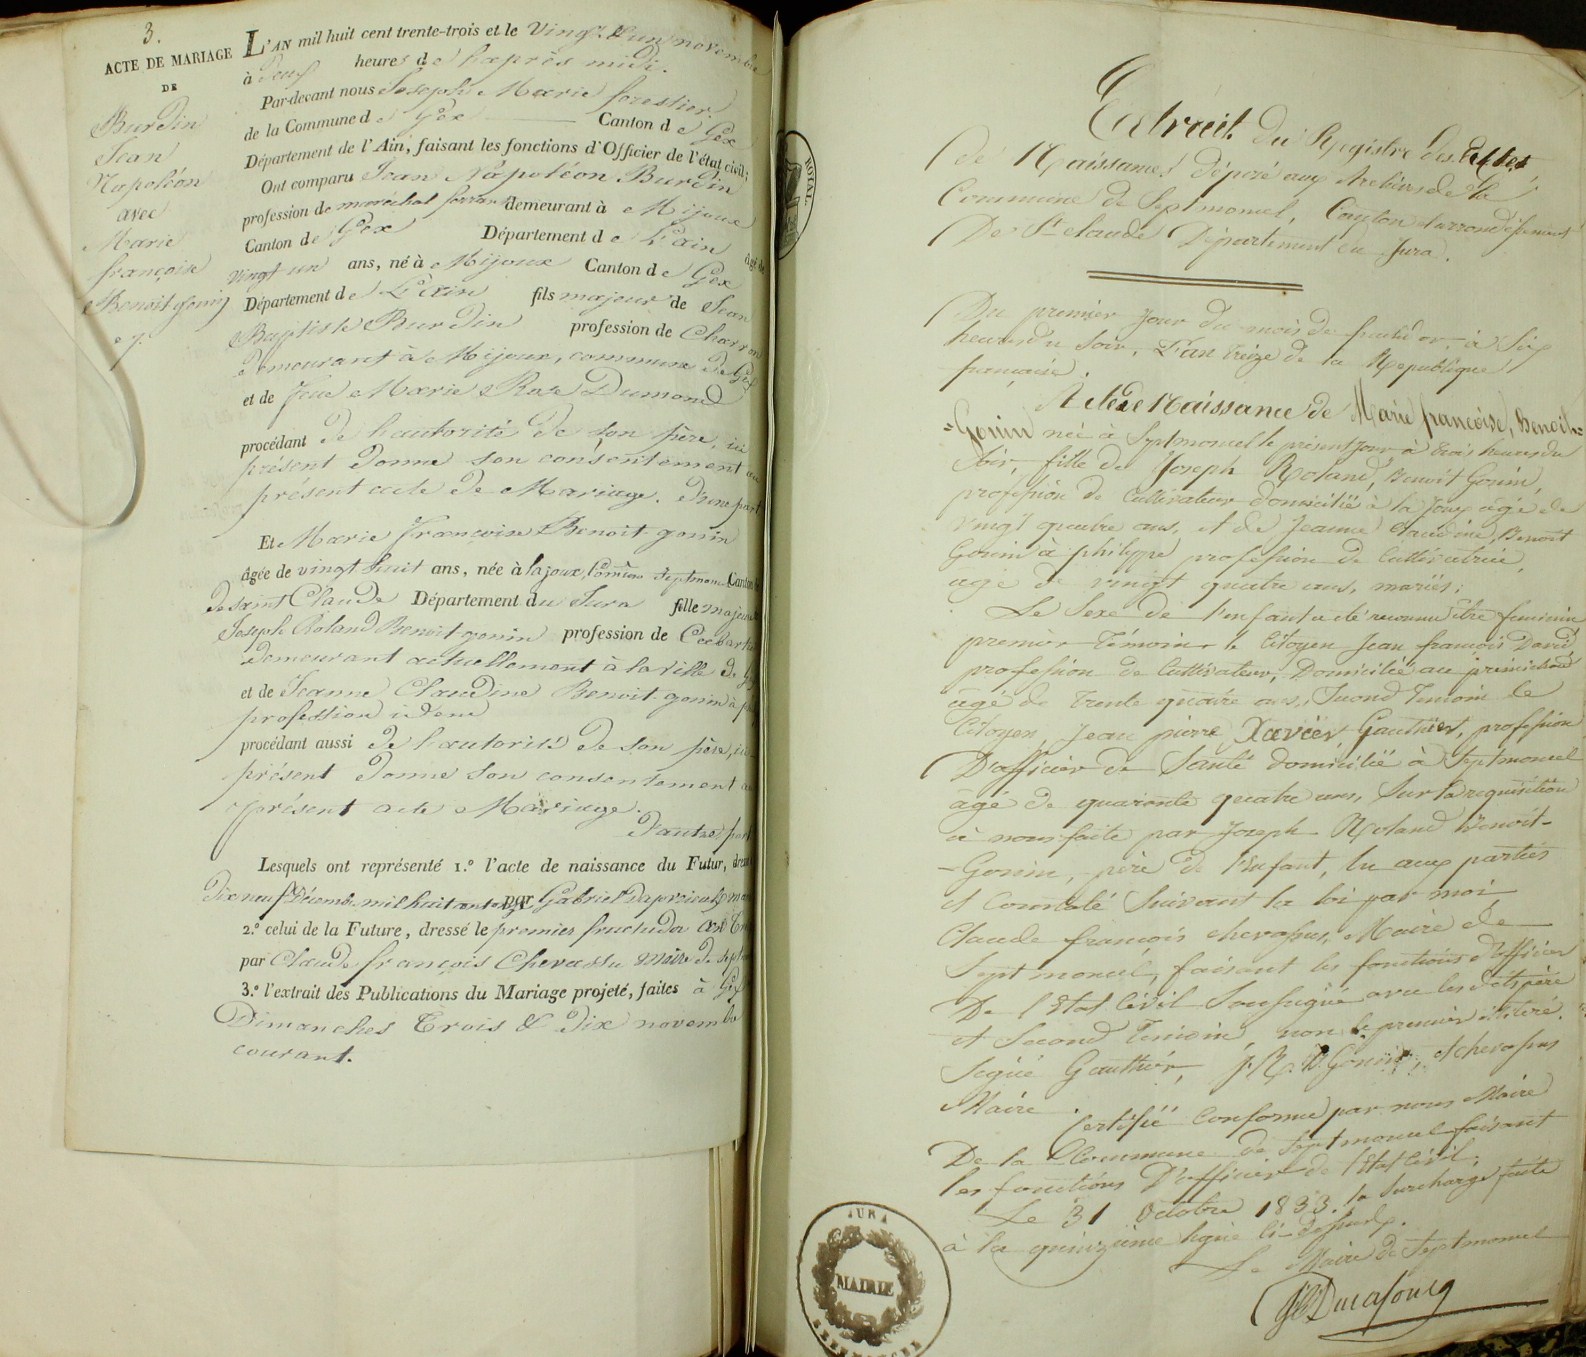 3.
ACTE DE MARIAGE
DE
Burdin
Jean
Napoléon
avec
Marie
françoise
Benoit gonin
L'AN mil huit cent trente-trois et le Vingt & un novembre
à deux heures de l'après midi.
Par-devant nous Joseph Marie forestier
de la Commune de Gex Canton de Gex
Département de l'Ain, faisant les fonctions d'Officier de l'état civil;
Ont comparu Jean Napoléon Burdin
profession de maréchal ferrant demeurant à Mijoux
Canton de Gex Département de L'ain âgé de
vingt un ans, né à Mijoux Canton de Gex
Département de L'ain fils majeur de Jean
Baptiste Burdin profession de Charron
demeurant à Mijoux, commune de Gex
et de feue Marie Rose Dumond
procédant de l'autorité de son père, ici
présent donne son consentement au
présent acte de Mariage. d'une part
Et Marie françoise Benoit gonin
âgée de vingt huit ans, née à lajoux, Septmon Canton
de saint Claude Département du Jura fille majeure
Joseph Roland Benoit gonin profession de
demeurant actuellement à la ville de Gex
et de Jeanne Claudine Benoit gonin à
profession idem
procédant aussi de l'autorité de son père, ici
présent donne son consentement au
présent acte Mariage.
D'autre part
Lesquels ont représenté 1.º l'acte de naissance du Futur, dressé
dix neuf Décemb. mil huit cent par Gabriel
2.º celui de la Future, dressé le premier fructidor an
par Claude françois Chevassu Maire de sept
3.º l'extrait des Publications du Mariage projeté, faites à Gex
Dimanches Trois & dix novembre
courant.
ROYAL.
Extrait du Registre des Actes
de Naissances déposé aux Archives de la
Commune de Septmoncel, Canton et arrondissement
De St. claude Département du Jura.
Du premier jour du mois de fructidor, à Six
heures du Soir, L'an treize de la République
française.
Acte de Naissance de Marie françoise, Benoit-
-Gonin née à Septmoncel le présent jour à trois heures du
Soir, fille de Joseph Roland, Benoit Gonin,
profession de Cultivateur domicilié à la Joux âgé de
vingt quatre ans, et de Jeanne Claudine, Benoit
Gonin à philippe profession de Cultivatrice,
agé de vingt quatre ans, mariés;
Le Sexe de l'enfant a été reconnu être feminin
premier Témoin le Citoyen Jean françois David
profession de Cultivateur, Domicilié au
agé de Trente quatre ans, Second Temoin le
Citoyen, Jean pierre Xavier Gauthier, profession
D'officier de Santé domicilié à Septmoncel
âgé de quarante quatre ans, Sur la requisition
à nous faite par Joseph Roland Benoit-
-Gonin, père de l'Enfant, lu aux parties
et Constaté Suivant la loi par moi
Claude françois chevassus, Maire de
Septmoncel, faisant les fonctions d'officier
De l'Etat Civil Soussigné avec les dits père
et Second Temoin, non le premier illiteré.
Signé Gauthier, J. R. B. Gonin, et chevassus
Maire.
Certifié Conforme par nous Maire
De la Commune de Septmoncel faisant
les fonctions D'officier de l'Etat Civil,
Le 31 Octobre 1833. la Surcharge faite
à la quinzième ligne ci-dessus.
Le Maire de Septmoncel
JURA
MAIRIE